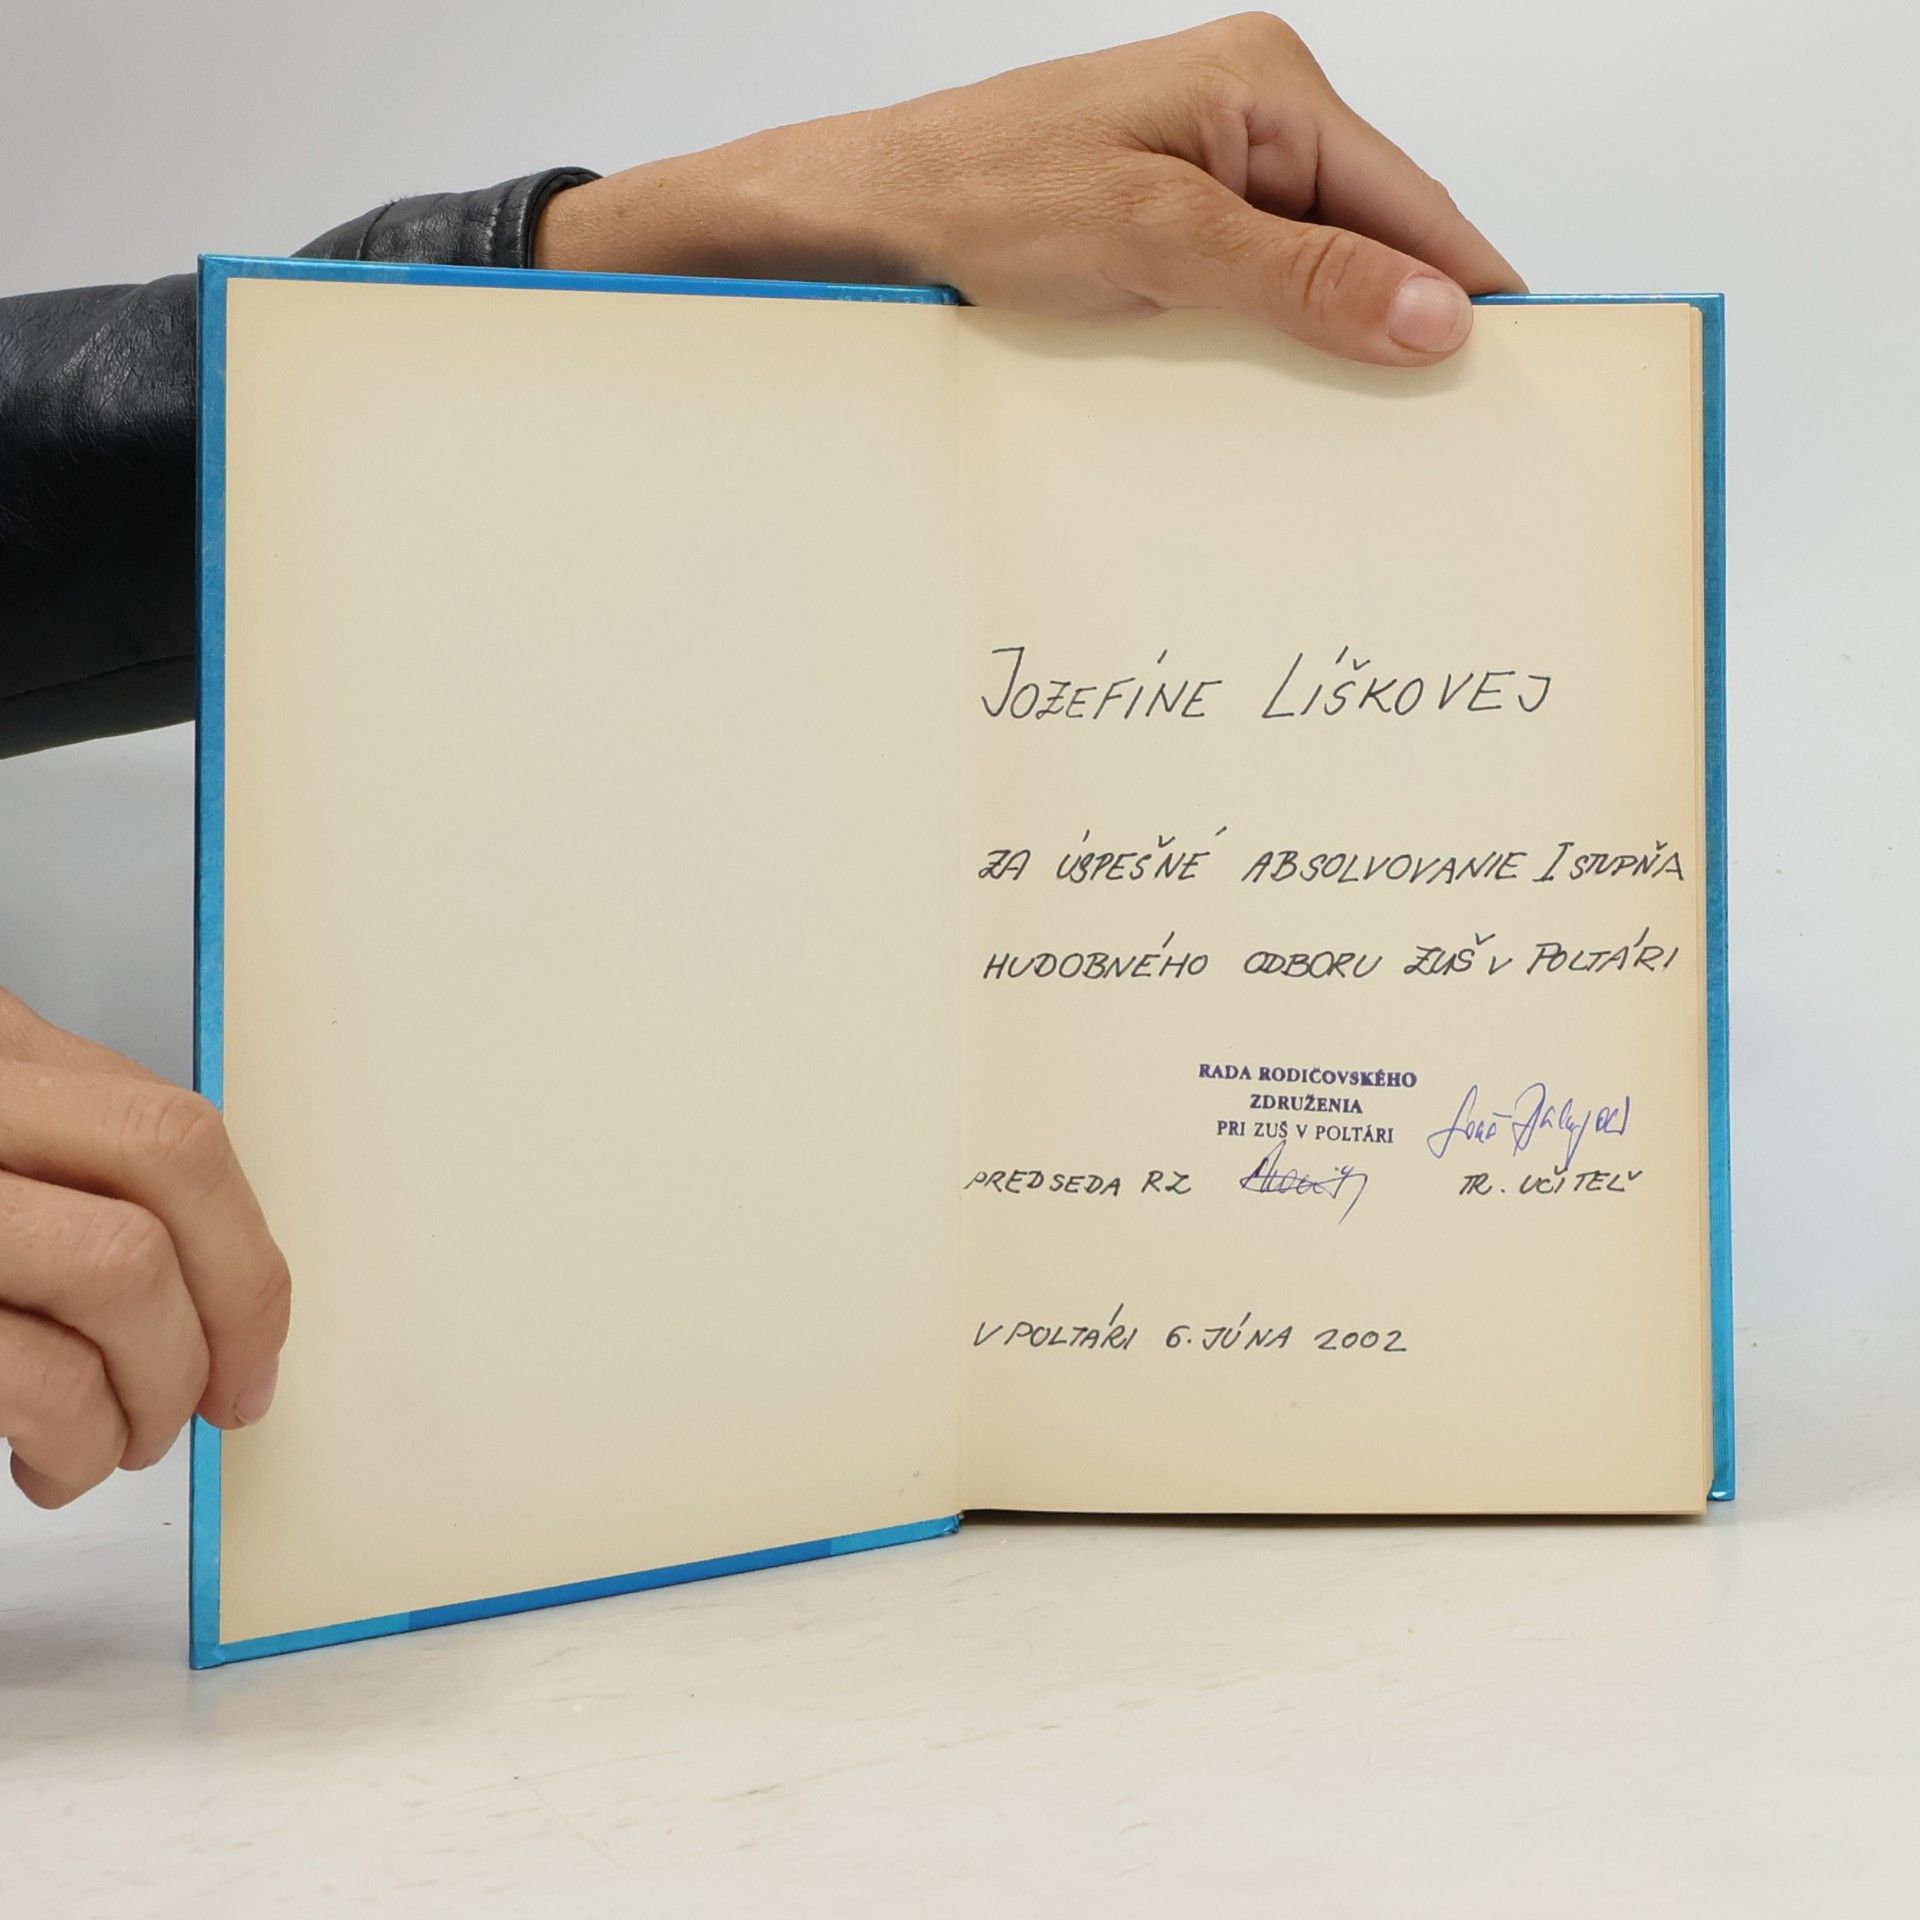 JOZEFÍNE LÍŠKOVEJ
ZA ÚSPEŠNÉ ABSOLVOVANIE I STUPŇA
HUDOBNÉHO ODBORU ZUŠ V POLTÁRI
RADA RODIČOVSKÉHO
ZDRUŽENIA
PRI ZUŠ V POLTÁRI
PREDSEDA RZ TR. UČITEĽ
V POLTÁRI 6. JÚNA 2002